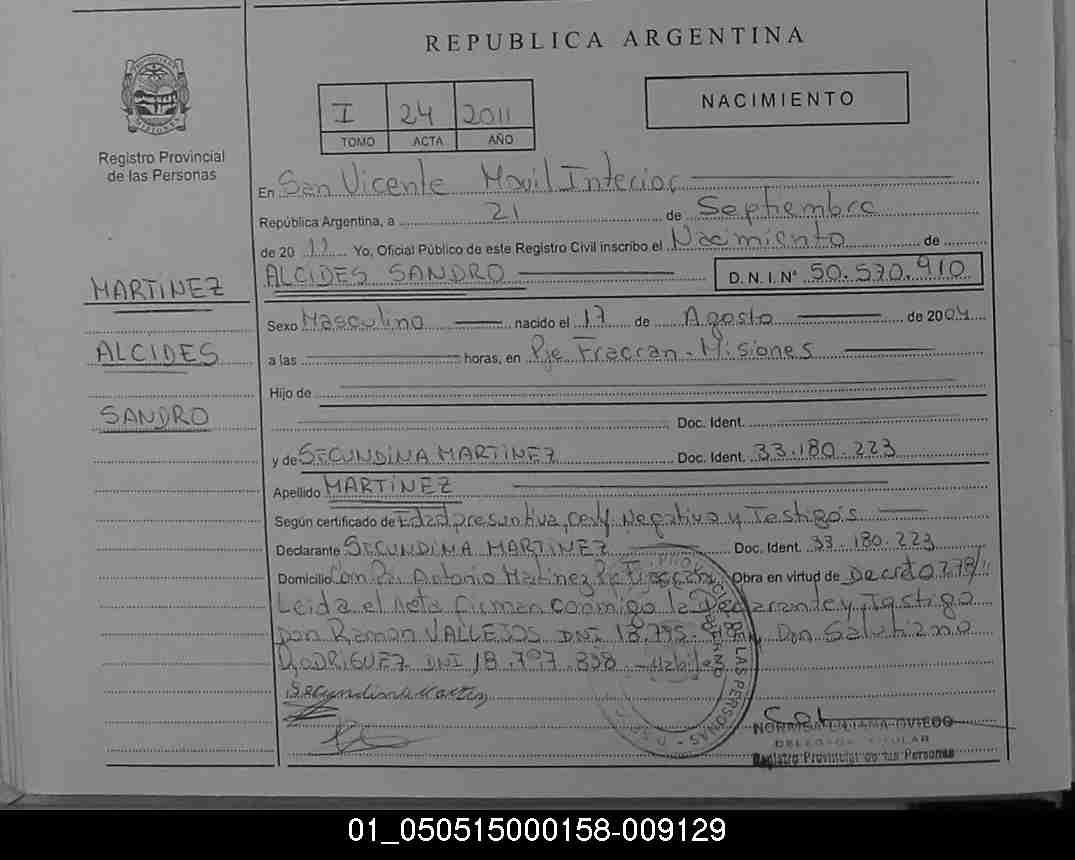 REPUBLICA ARGENTINA
I 24 2011
TOMO ACTA AÑO
NACIMIENTO
Registro Provincial
de las Personas
En San Vicente Movil Interior
República Argentina, a 21 de Septiembre
de 20 11 Yo, Oficial Público de este Registro Civil inscribo el Nacimiento de
ALCIDES SANDRO D.N.I.Nº 50.570.910
MARTINEZ
ALCIDES
SANDRO
Sexo Masculino nacido el 17 de Agosto de 2004
a las horas, en Pje Fracran - Misiones
Hijo de
Doc. Ident.
y de SECUNDINA MARTINEZ Doc. Ident. 33.180.223
Apellido MARTINEZ
Según certificado de Edad presuntiva, Negativo y Testigos
Declarante SECUNDINA MARTINEZ Doc. Ident. 33.180.223
Domicilio Antonio Martinez Pje Fracran Obra en virtud de Decreto 778/11
Leida el Acta firman conmigo la Declarante y Testigo
Don Ramon VALLEJOS DNI 18.795. Don Salustiano
RODRIGUEZ DNI 18.797.838
Secundina Martinez
DE LAS PERSONAS
OVIEDO
TITULAR
Registro Provincial de las Personas
01_050515000158-009129